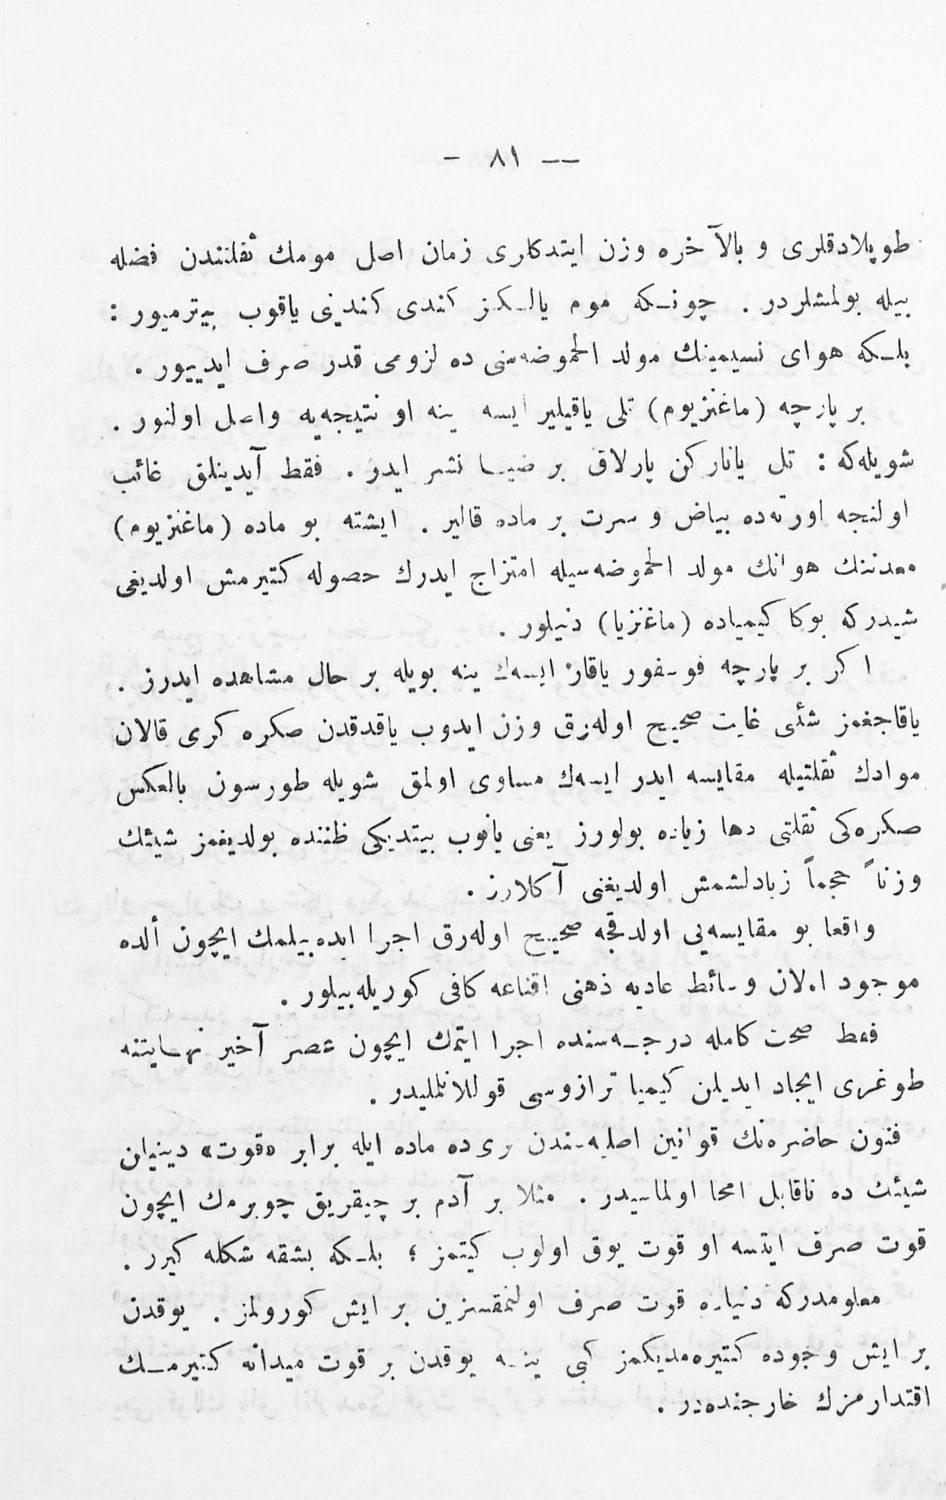 — ٨١ —
طوپلادقلری و بالآخره وزن ایتدکلری زمان اصل مومك ثقلتندن فضله
بیله بولمشلردر . چونـکه موم یالـکز کندی کندینی یاقوب بیترمیور :
بلـکه هوای نسیمینك مولد الحموضه‌سنی ده لزومی قدر صرف ایدییور .
بر پارچه (ماغنزیوم) تلی یاقیلیر ایسه ینه او نتیجه‌یه واصل اولنور .
شویله‌که : تل یانارکن پارلاق بر ضیـا نشر ایدر . فقط آیدینلق غائب
اولنجه اورته‌ده بیاض و سرت بر ماده قالیر . ایشته بو ماده (ماغنزیوم)
معدننك هوانك مولد الحموضه‌سیله امتزاج ایدرك حصوله کتیرمش اولدیغی
شیدرکه بوکا کیمیاده (ماغنزیا) دنیلور .
اکر بر پارچه فوسفور یاقار ایسه‌ك ینه بویله بر حال مشاهده ایدرز .
یاقاجغمز شئی غایت صحیح اوله‌رق وزن ایدوب یاقدقدن صکره کری قالان
موادك ثقلتیله مقایسه ایدر ایسه‌ك مساوی اولمق شویله طورسون بالعکس
صکره‌کی ثقلتی دها زیاده بولورز یعنی یانوب بیتدیکی ظننده بولدیغمز شیئك
وزناً حجماً زیادلشمش اولدیغنی آکلارز .
واقعا بو مقایسه‌یی اولدقجه صحیح اوله‌رق اجرا ایده‌بیلمك ایچون ألده
موجود اولان وسائط عادیه ذهنی اقناعه کافی کوریله‌بیلور .
فقط صحت کامله درجـه‌سنده اجرا ایتمك ایچون عصر آخیر نهـایتنه
طوغری ایجاد ایدیلن کیمیا ترازوسی قوللانملیدر .
فنون حاضره‌نك قوانین اصلیه‌سندن بری ده ماده ایله برابر «قوت» دینیلن
شیئك ده ناقابل امحا اولماسیدر . مثلا بر آدم بر چیقریق چویرمك ایچون
قوت صرف ایتسه او قوت یوق اولوب کیتمز ؛ بلـکه بشقه شکله کیرر .
معلومدرکه دنیاده قوت صرف اولنمقسزین بر ایش کورولمز . یوقدن
بر ایش وجوده کتیره‌مدیکمز کبی ینـه یوقدن بر قوت میدانه کتیرمـك
اقتدارمزك خارجنده‌در .